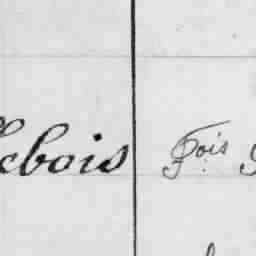 ebois Fois